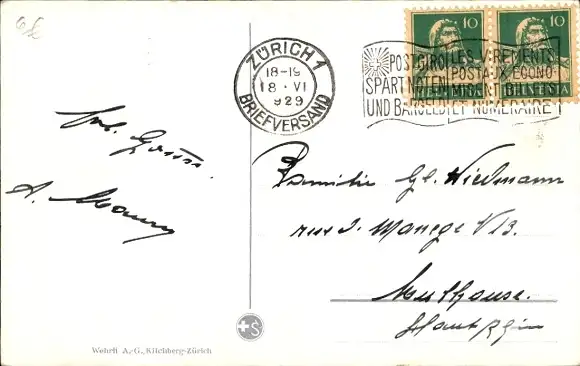 ZÜRICH 1
18-19
18·VI
1929
BRIEFVERSAND
POSTGIRO
SPART NOTEN
UND BARGELD
LES VIREMENTS
POSTAUX ECONO-
MISENT BILLETS
ET NUMERAIRE
10
10
HELVETIA
HELVETIA
A.
Familie Gl. Wiedmann
rue d. Manege V 13.
Mulhouse.
Haut Rhin
S
Wehrli A.-G., Kilchberg-Zürich